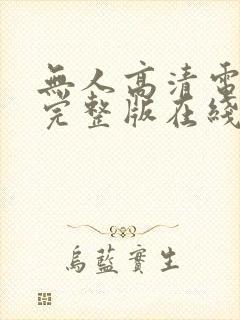 無人高清電
完整版在綫
烏藍實生